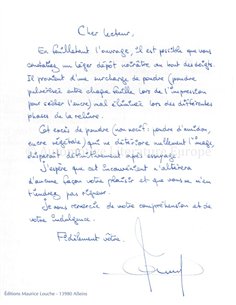 Cher lecteur,
En feuilletant l'ouvrage, il est possible que vous
constatiez un léger dépôt noirâtre au bout des doigts.
Il provient d'une surcharge de poudre (poudre
pulvérisée entre chaque feuille lors de l'impression
pour sécher l'encre) mal éliminée lors des différentes
phases de la reliure.
Cet excès de poudre (non nocif : poudre d'amidon,
encre végétale) qui ne détériore nullement l'image,
disparaît définitivement après essuyage.
J'espère que cet inconvénient n'altérera
d'aucune façon votre plaisir et que vous ne m'en
tiendrez pas rigueur.
Je vous remercie de votre compréhension et de
votre indulgence.
Fidèlement vôtre.
Éditions Maurice Louche - 13980 Alleins